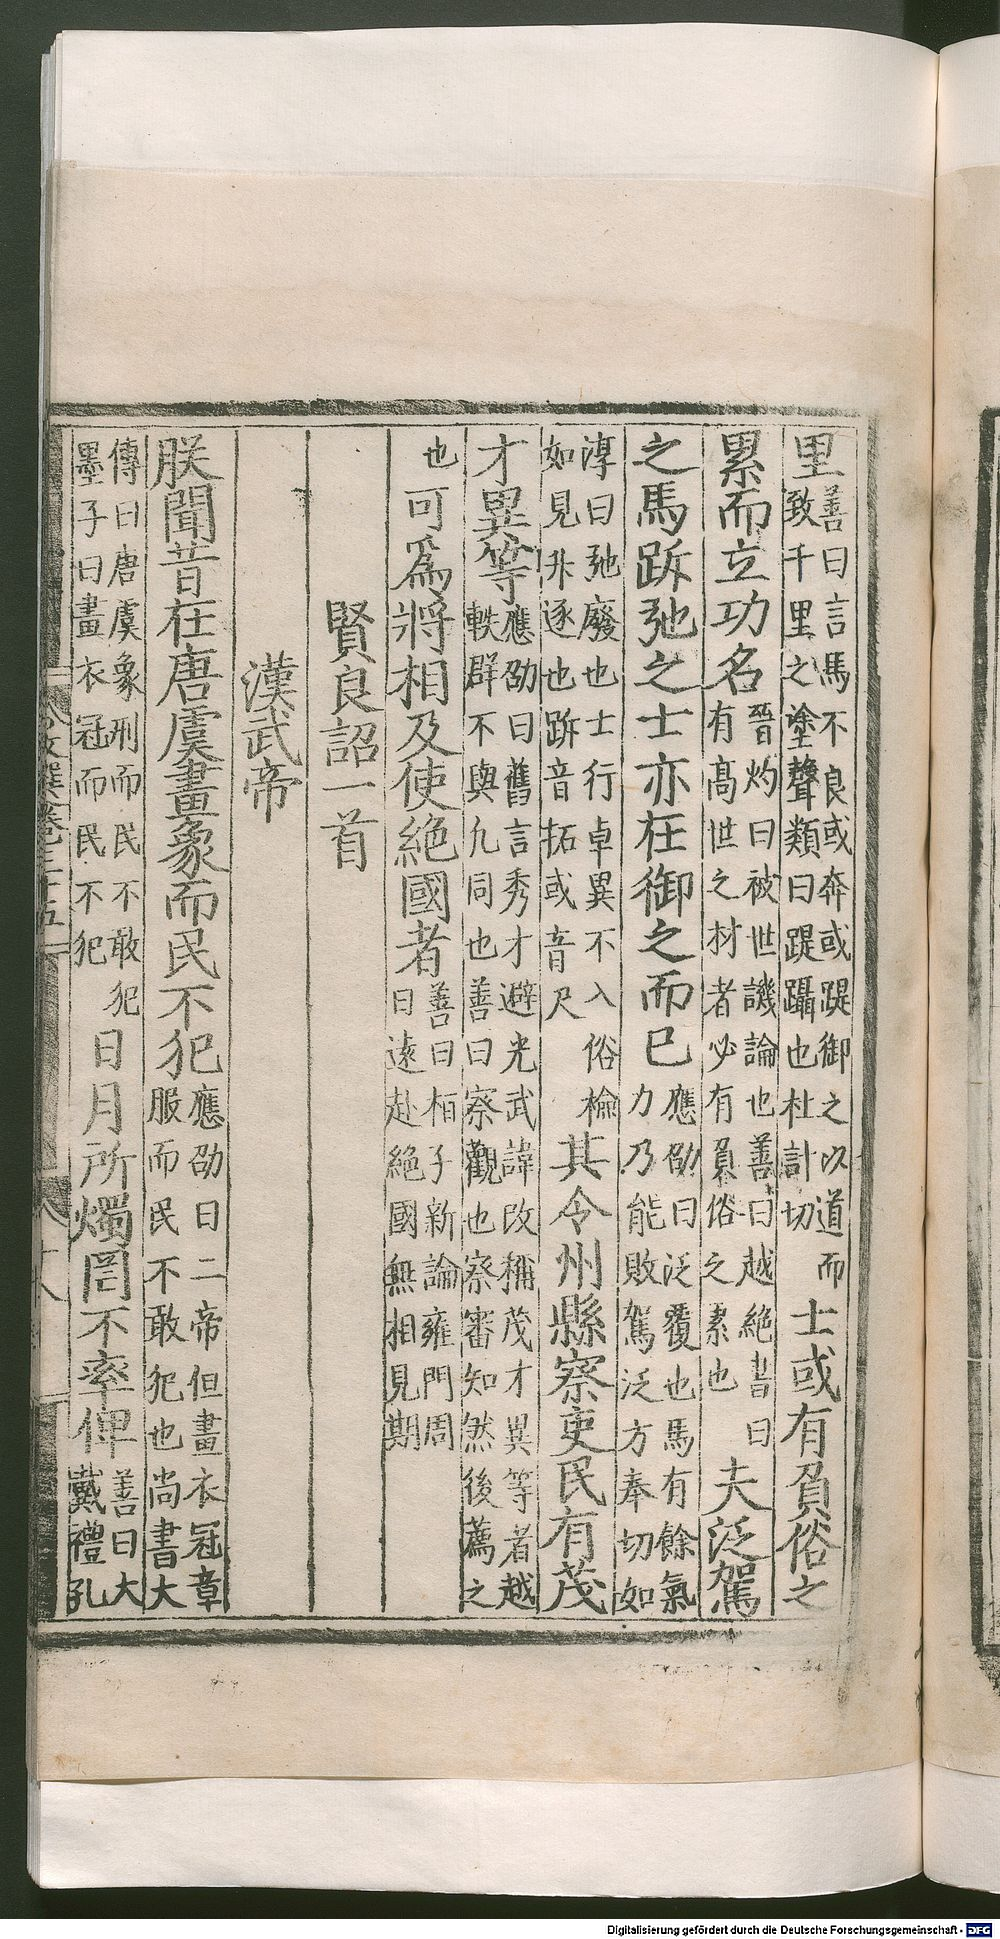 里善曰言馬不良或奔或踶御之以道而致千里之塗聲類曰踶躡也杜計切士或有負俗之
累而立功名晉灼曰被世譏論也善曰越絶書曰有髙世之材者必有負俗之累也夫泛駕
之馬跅弛之士亦在御之而已應劭曰泛覆也馬有餘氣力乃能敗駕泛方奉切如
淳曰弛廢也士行卓異不入俗檢如見斥逐也跅音拓或音尺其令州縣察吏民有茂
才異等應劭曰舊言秀才避光武諱改稱茂才異等者越軼群不與凢同也善曰察觀也察審知然後薦之
也可爲將相及使絶國者善曰桓子新論雍門周曰遠赴絶國無相見期
賢良詔一首
漢武帝
朕聞昔在唐虞畫象而民不犯應劭曰二帝但畫衣冠章服而民不敢犯也尚書大
傳曰唐虞象刑而民不敢犯墨子曰畫衣冠而民不犯日月所燭罔不率俾善曰大戴禮孔
文選卷三十五
十八
Digitalisierung gefördert durch die Deutsche Forschungsgemeinschaft - DFG